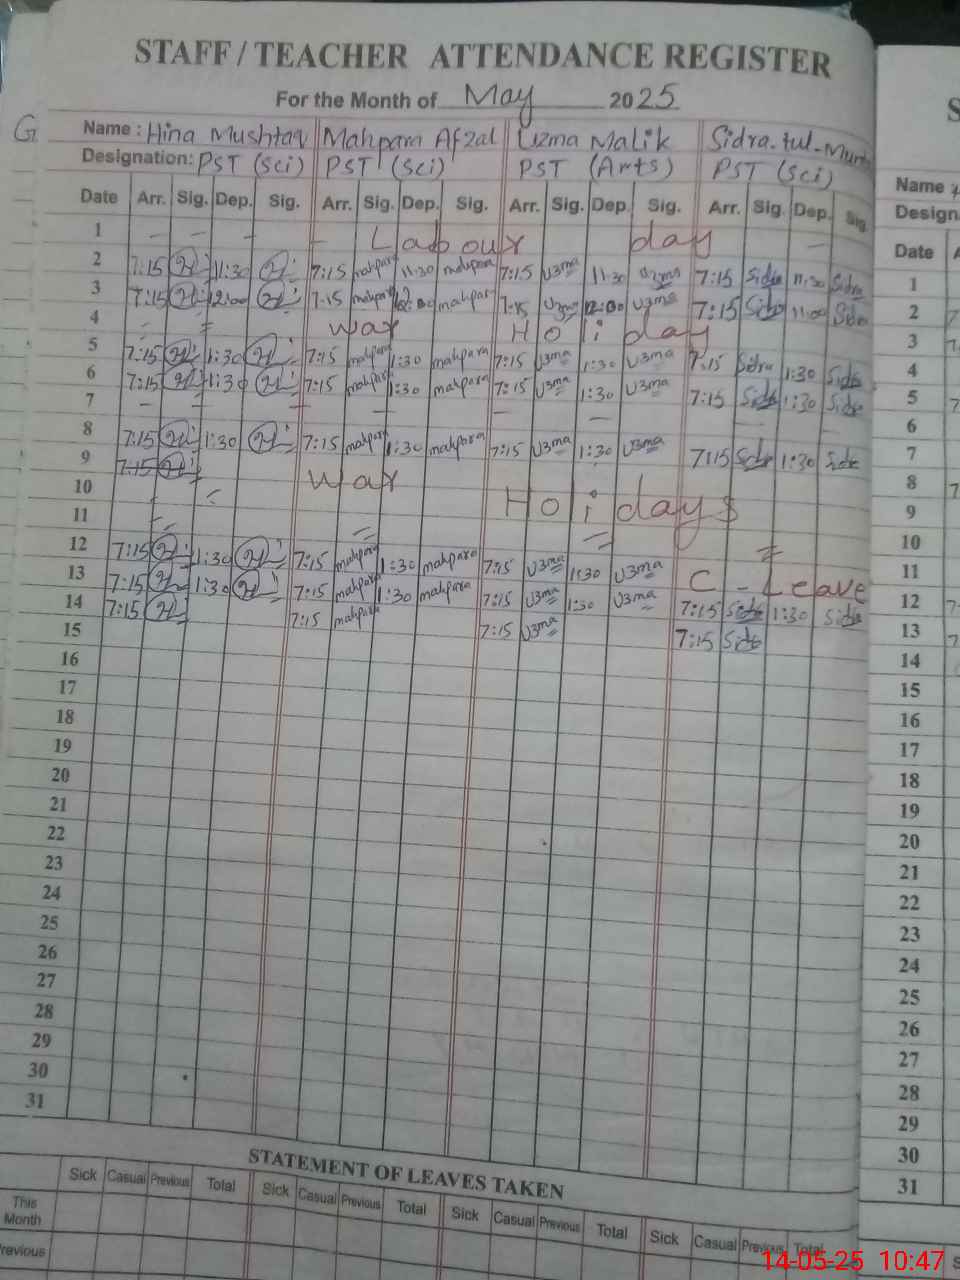 STAFF / TEACHER ATTENDANCE REGISTER
For the Month of May 2025
G
Name : Hina Mushtaq Mahpara Afzal Uzma Malik Sidra.tul-
Designation: PST (Sci) PST (Sci) PST (Arts) PST (Sci)
Date Arr. Sig. Dep. Sig. Arr. Sig. Dep. Sig. Arr. Sig. Dep. Sig. Arr. Sig. Dep. Sig.
1 – – – – Labour day –
2 7:15 11:30 7:15 mahpara 11:30 mahpara 7:15 Uzma 11:30 Uzma 7:15 Sidra 11:30 Sidra
3 7:15 12:00 7:15 mahpara 12:00 mahpara 7:15 Uzma 12:00 Uzma 7:15 Sidra 11:00 Sidra
4 War Holiday
5 7:15 1:30 7:15 mahpara 1:30 mahpara 7:15 Uzma 1:30 Uzma 7:15 Sidra 1:30 Sidra
6 7:15 1:30 7:15 mahpara 1:30 mahpara 7:15 Uzma 1:30 Uzma 7:15 Sidra 1:30 Sidra
7 – – – – –
8 7:15 1:30 7:15 mahpara 1:30 mahpara 7:15 Uzma 1:30 Uzma 7:15 Sidra 1:30 Sidra
9 7:15
10 War Holidays
11
12 7:15 1:30 7:15 mahpara 1:30 mahpara 7:15 Uzma 1:30 Uzma C - Leave
13 7:15 1:30 7:15 mahpara 1:30 mahpara 7:15 Uzma 1:30 Uzma 7:15 Sidra 1:30 Sidra
14 7:15 7:15 mahpara 7:15 Uzma 7:15 Sidra
15
16
17
18
19
20
21
22
23
24
25
26
27
28
29
30
31
STATEMENT OF LEAVES TAKEN
Sick Casual Previous Total Sick Casual Previous Total Sick Casual Previous Total Sick Casual Previous Total
This Month
revious
S
Name
Design
Date A
1
2 7
3 7
4
5 7
6
7
8 7
9
10
11
12 7
13 7
14
15
16
17
18
19
20
21
22
23
24
25
26
27
28
29
30
31
14-05-25 10:47